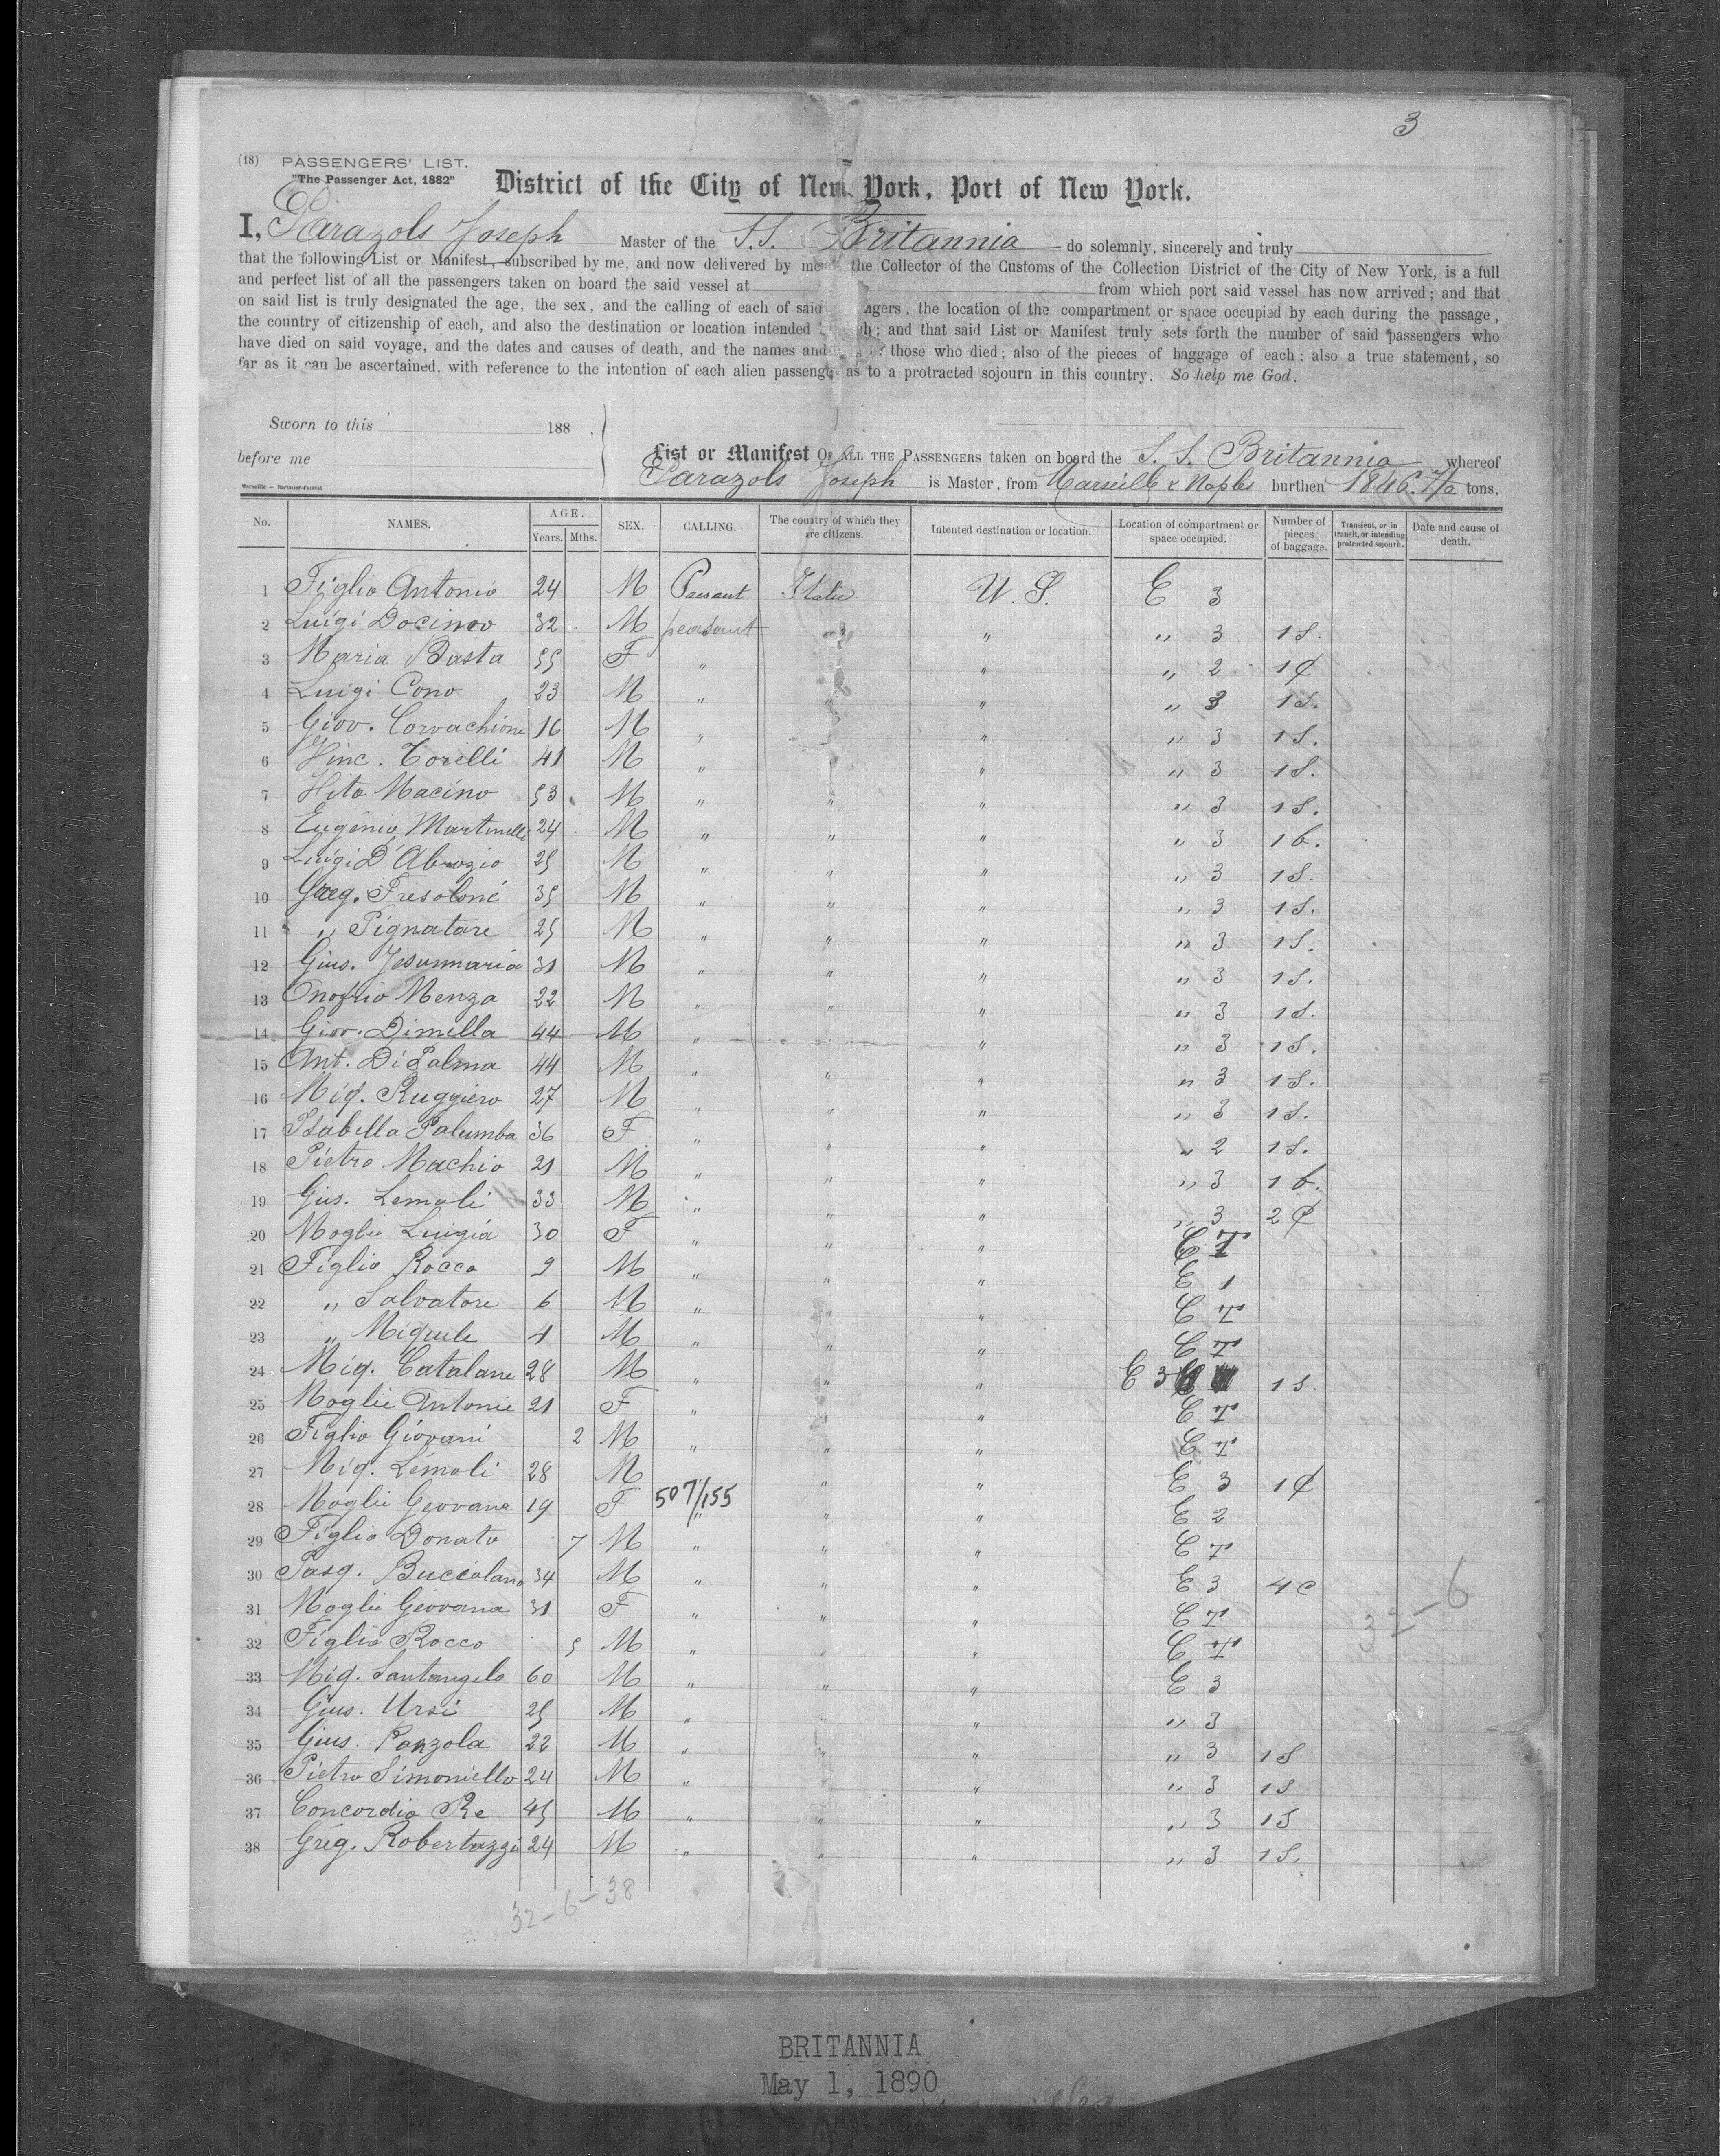 3
(18) PASSENGERS' LIST.
"The Passenger Act, 1882"
District of the City of New York, Port of New York.
I, Parazols Joseph Master of the S.S. Britannia do solemnly, sincerely and truly
that the following List or Manifest, subscribed by me, and now delivered by me the Collector of the Customs of the Collection District of the City of New York, is a full
and perfect list of all the passengers taken on board the said vessel at from which port said vessel has now arrived; and that
on said list is truly designated the age, the sex, and the calling of each of said agers, the location of the compartment or space occupied by each during the passage,
the country of citizenship of each, and also the destination or location intended h; and that said List or Manifest truly sets forth the number of said passengers who
have died on said voyage, and the dates and causes of death, and the names and those who died; also of the pieces of baggage of each; also a true statement, so
far as it can be ascertained, with reference to the intention of each alien passeng as to a protracted sojourn in this country. So help me God.
Sworn to this 188 .
before me
List or Manifest OF ALL THE PASSENGERS taken on board the S. S. Britannia whereof
Parazols Joseph is Master, from Marseille & Naples burthen 1846. tons,
No. NAMES. AGE. Years. Mths. SEX. CALLING. The country of which they are citizens. Intented destination or location. Location of compartment or space occupied. Number of pieces of baggage. Transient, or in transit, or intending protracted sojourn. Date and cause of death.
1 Figlio Antonio 24 M Paesant Italie U. S. E 3
2 Luigi Docimo 32 M peasant " " 3 1 S.
3 Maria Basta 55 F " " " 2 1 C
4 Luigi Cono 23 M " " " " 3 1 S.
5 Giov. Corvachione 16 M " " " 3 1 S.
6 Vinc. Torilli 41 M " " " 3 1 S.
7 Vito Macino 53 M " " " " 3 1 S.
8 Eugenio Martinelli 24 M " " " " 3 1 b.
9 Luigi D'Abrozio 25 M " " " " 3 1 S.
10 Greg. Fresoloni 35 M " " " " 3 1 S.
11 " Pignatare 25 M " " " " 3 1 S.
12 Gius. Jesummaria 31 M " " " " 3 1 S.
13 Onofrio Menza 22 M " " " " 3 1 S.
14 Giov. Dimella 44 M " " " 3 1 S.
15 Ant. Di Palma 44 M " " " " 3 1 S.
16 Miq. Ruggiero 27 M " " " " 3 1 S.
17 Isabella Palumba 36 F " " " " 2 1 S.
18 Pietro Machio 21 M " " " " 3 1 b.
19 Gius. Lemoli 33 M " " " " 3 2 C
20 Moglie Luigia 30 F " " " E T
21 Figlio Rocco 9 M " " " E 1
22 " Salvatore 6 M " " " E T
23 " Miquele 4 M " " " E T
24 Miq. Catalane 28 M " " " E 3 1 S.
25 Moglie Antonie 21 F " " " E T
26 Figlio Giovani 2 M " " " E T
27 Miq. Lemoli 28 M " " E 3 1 C
28 Moglie Geovana 19 F 507/155 " " " E 2
29 Figlio Donato 7 M " " " E T
30 Pasq. Bucciolano 34 M " " " E 3 4 C
31 Moglie Geovana 31 F " " " E T
32 Figlio Rocco 5 M " " " E T
32-6
33 Miq. Santangelo 60 M " " " E 3
34 Gius. Ursi 25 M " " " 3
35 Gius. Panzola 22 M " " " " 3 1 S
36 Pietro Simoniello 24 M " " " " 3 1 S
37 Concordio Re 45 M " " " " 3 1 S
38 Greg. Robertazzi 24 M " " " " 3 1 S.
32-6-38
BRITANNIA
May 1, 1890